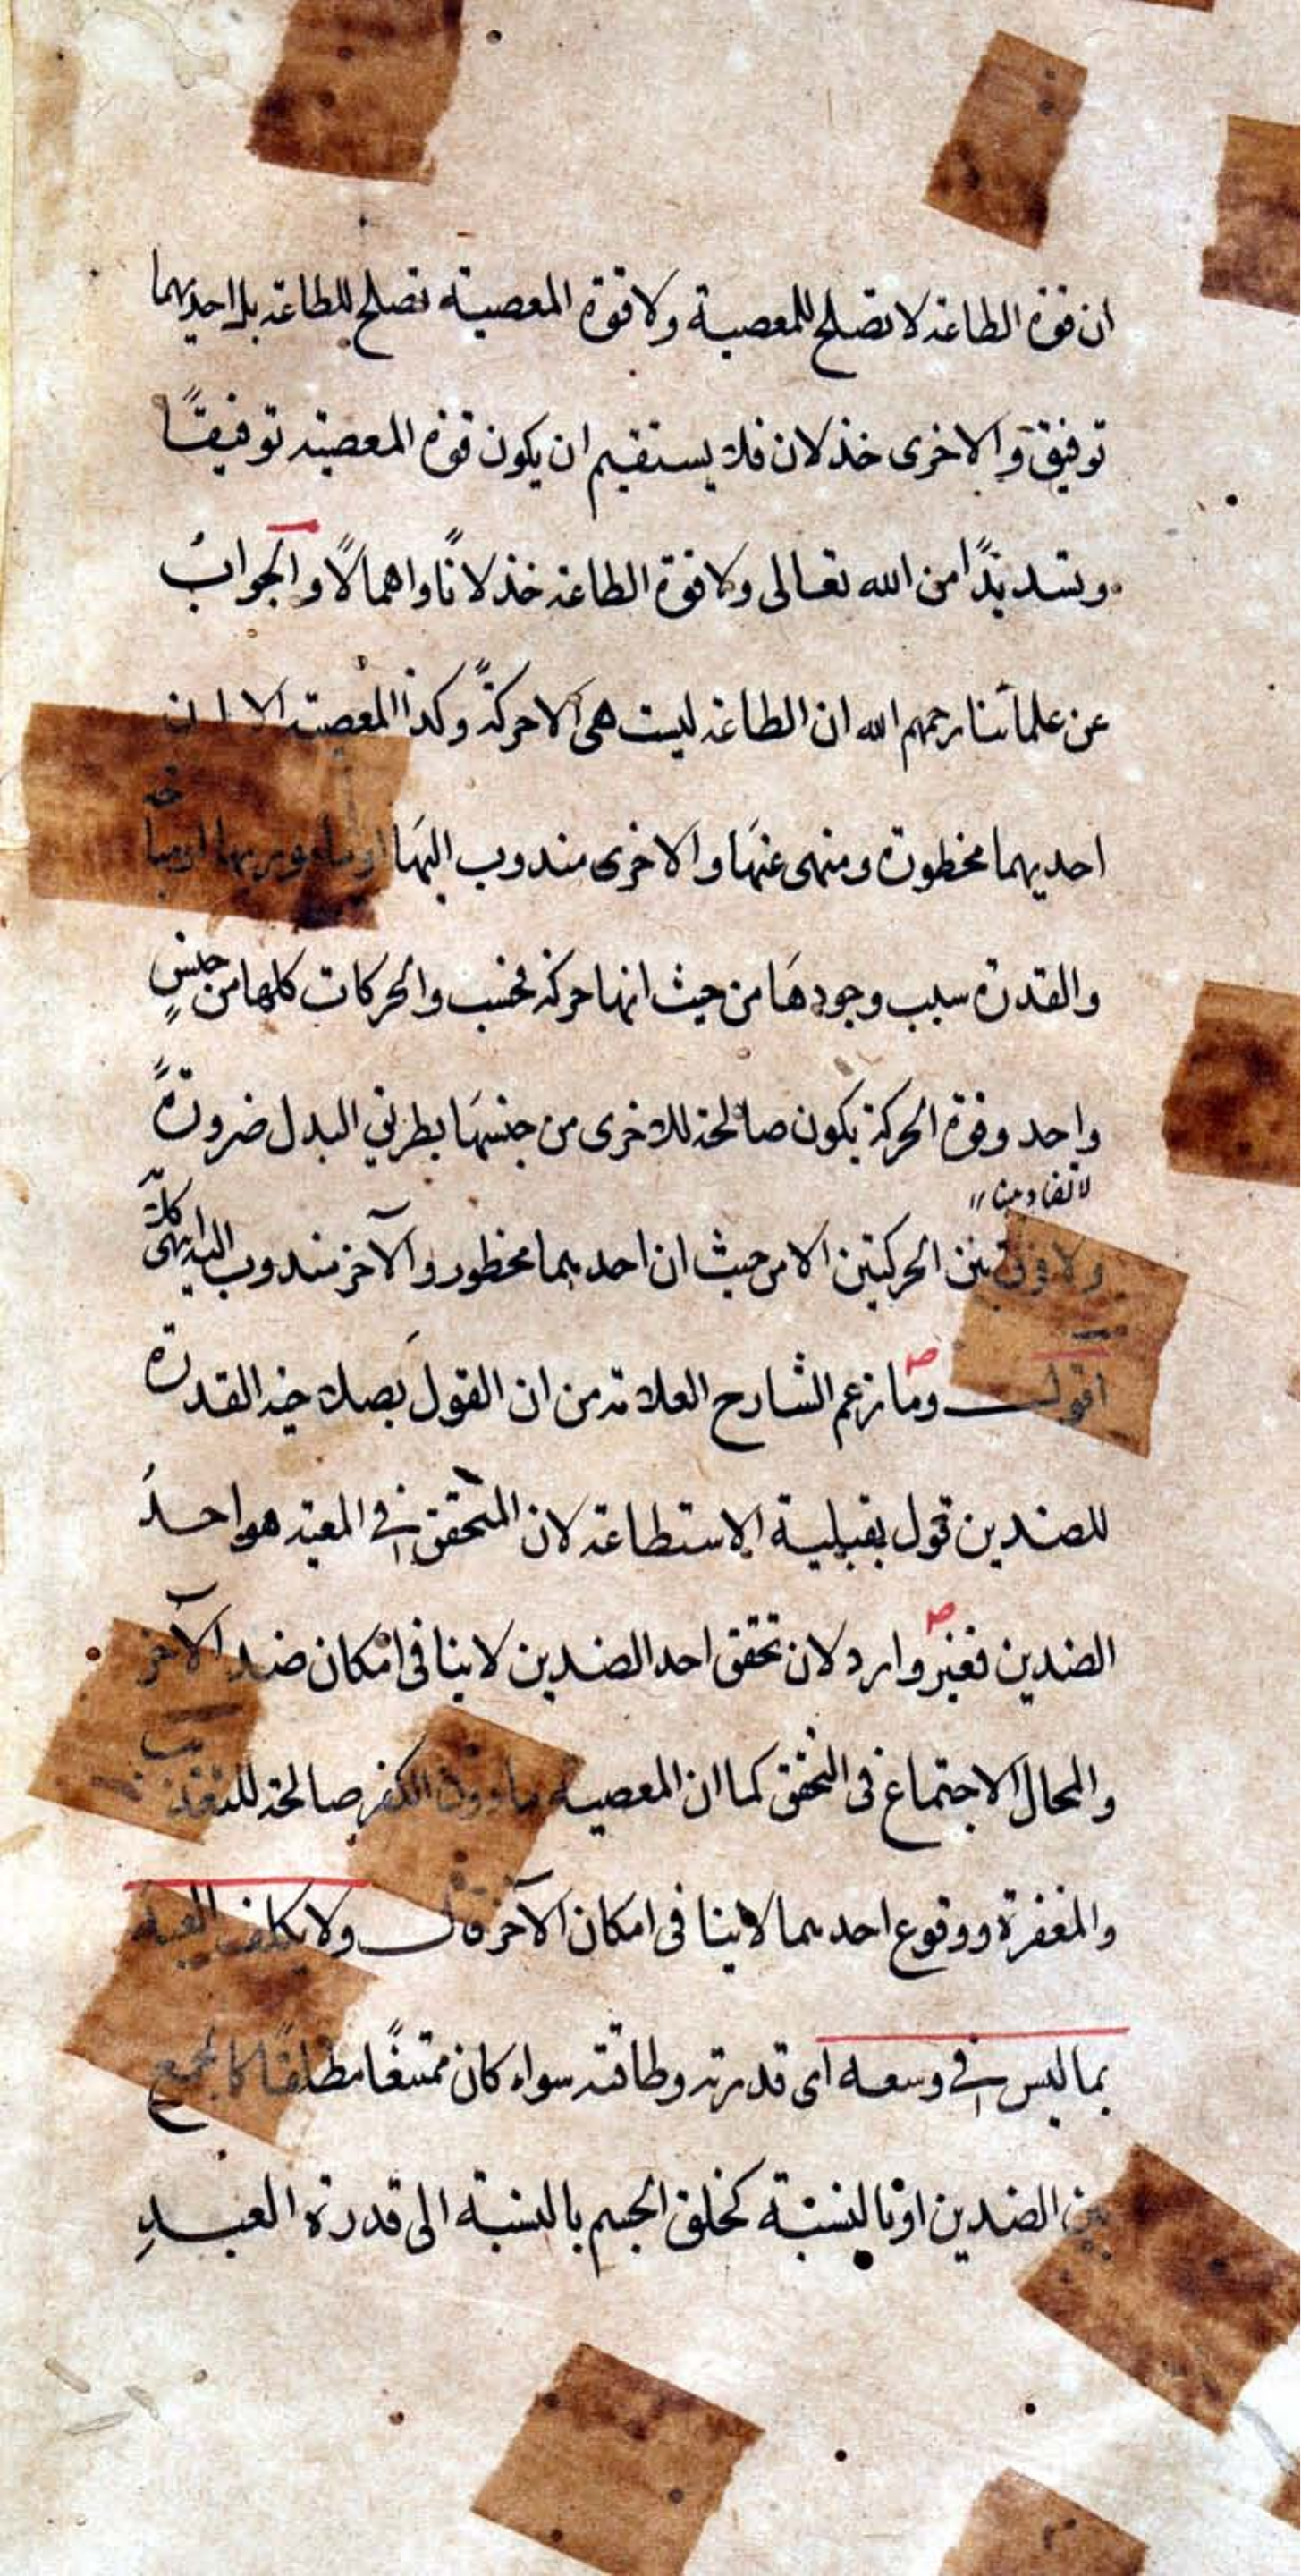 ان قوة الطاعة لا تصلح للمعصية ولا قوة المعصية تصلح للطاعة بل احديهما
توفيق والاخرى خذلان فلا يستقيم ان يكون قوة المعصية توفيقًا
وتسديدًا من الله تعالى ولا قوة الطاعة خذلانًا واهمالًا والجوابُ
عن علمائنا رحمهم الله ان الطاعة ليست هى الا حركةً وكذا المعصية الا ان
احديهما محظورة ومنهى عنها والاخرى مندوب اليها او مأمور بها او مباحة
والقدرة سبب وجودها من حيث انها حركة فحسب والحركات كلها من جنسٍ
واحد وقوة الحركة يكون صالحة للاخرى من جنسها بطريق البدل ضرورةً
لا تضاد هنا
ولا فرق بين الحركتين الا من حيث ان احديهما محظور والآخر مندوب اليه انتهى كلامه
اقول وما زعم الشارح العلامة من ان القول بصلاحية القدرة
للضدين قول بقبلية الاستطاعة لان المتحقق فى المعية هو احدُ
الضدين فغير وارد لان تحقق احد الضدين لا ينافى امكان ضد الآخر
والمحال الاجتماع فى التحقق كما ان المعصية ما دون الكفر صالحة للتعذيب
والمغفرة ووقوع احديهما لا ينافى امكان الآخر قال ولا يكلف العبد
بما ليس فى وسعه اى قدرته وطاقته سواء كان ممتنعًا مطلقًا كالجمع
بين الضدين او بالنسبة كخلق الجسم بالنسبة الى قدرة العبدِ